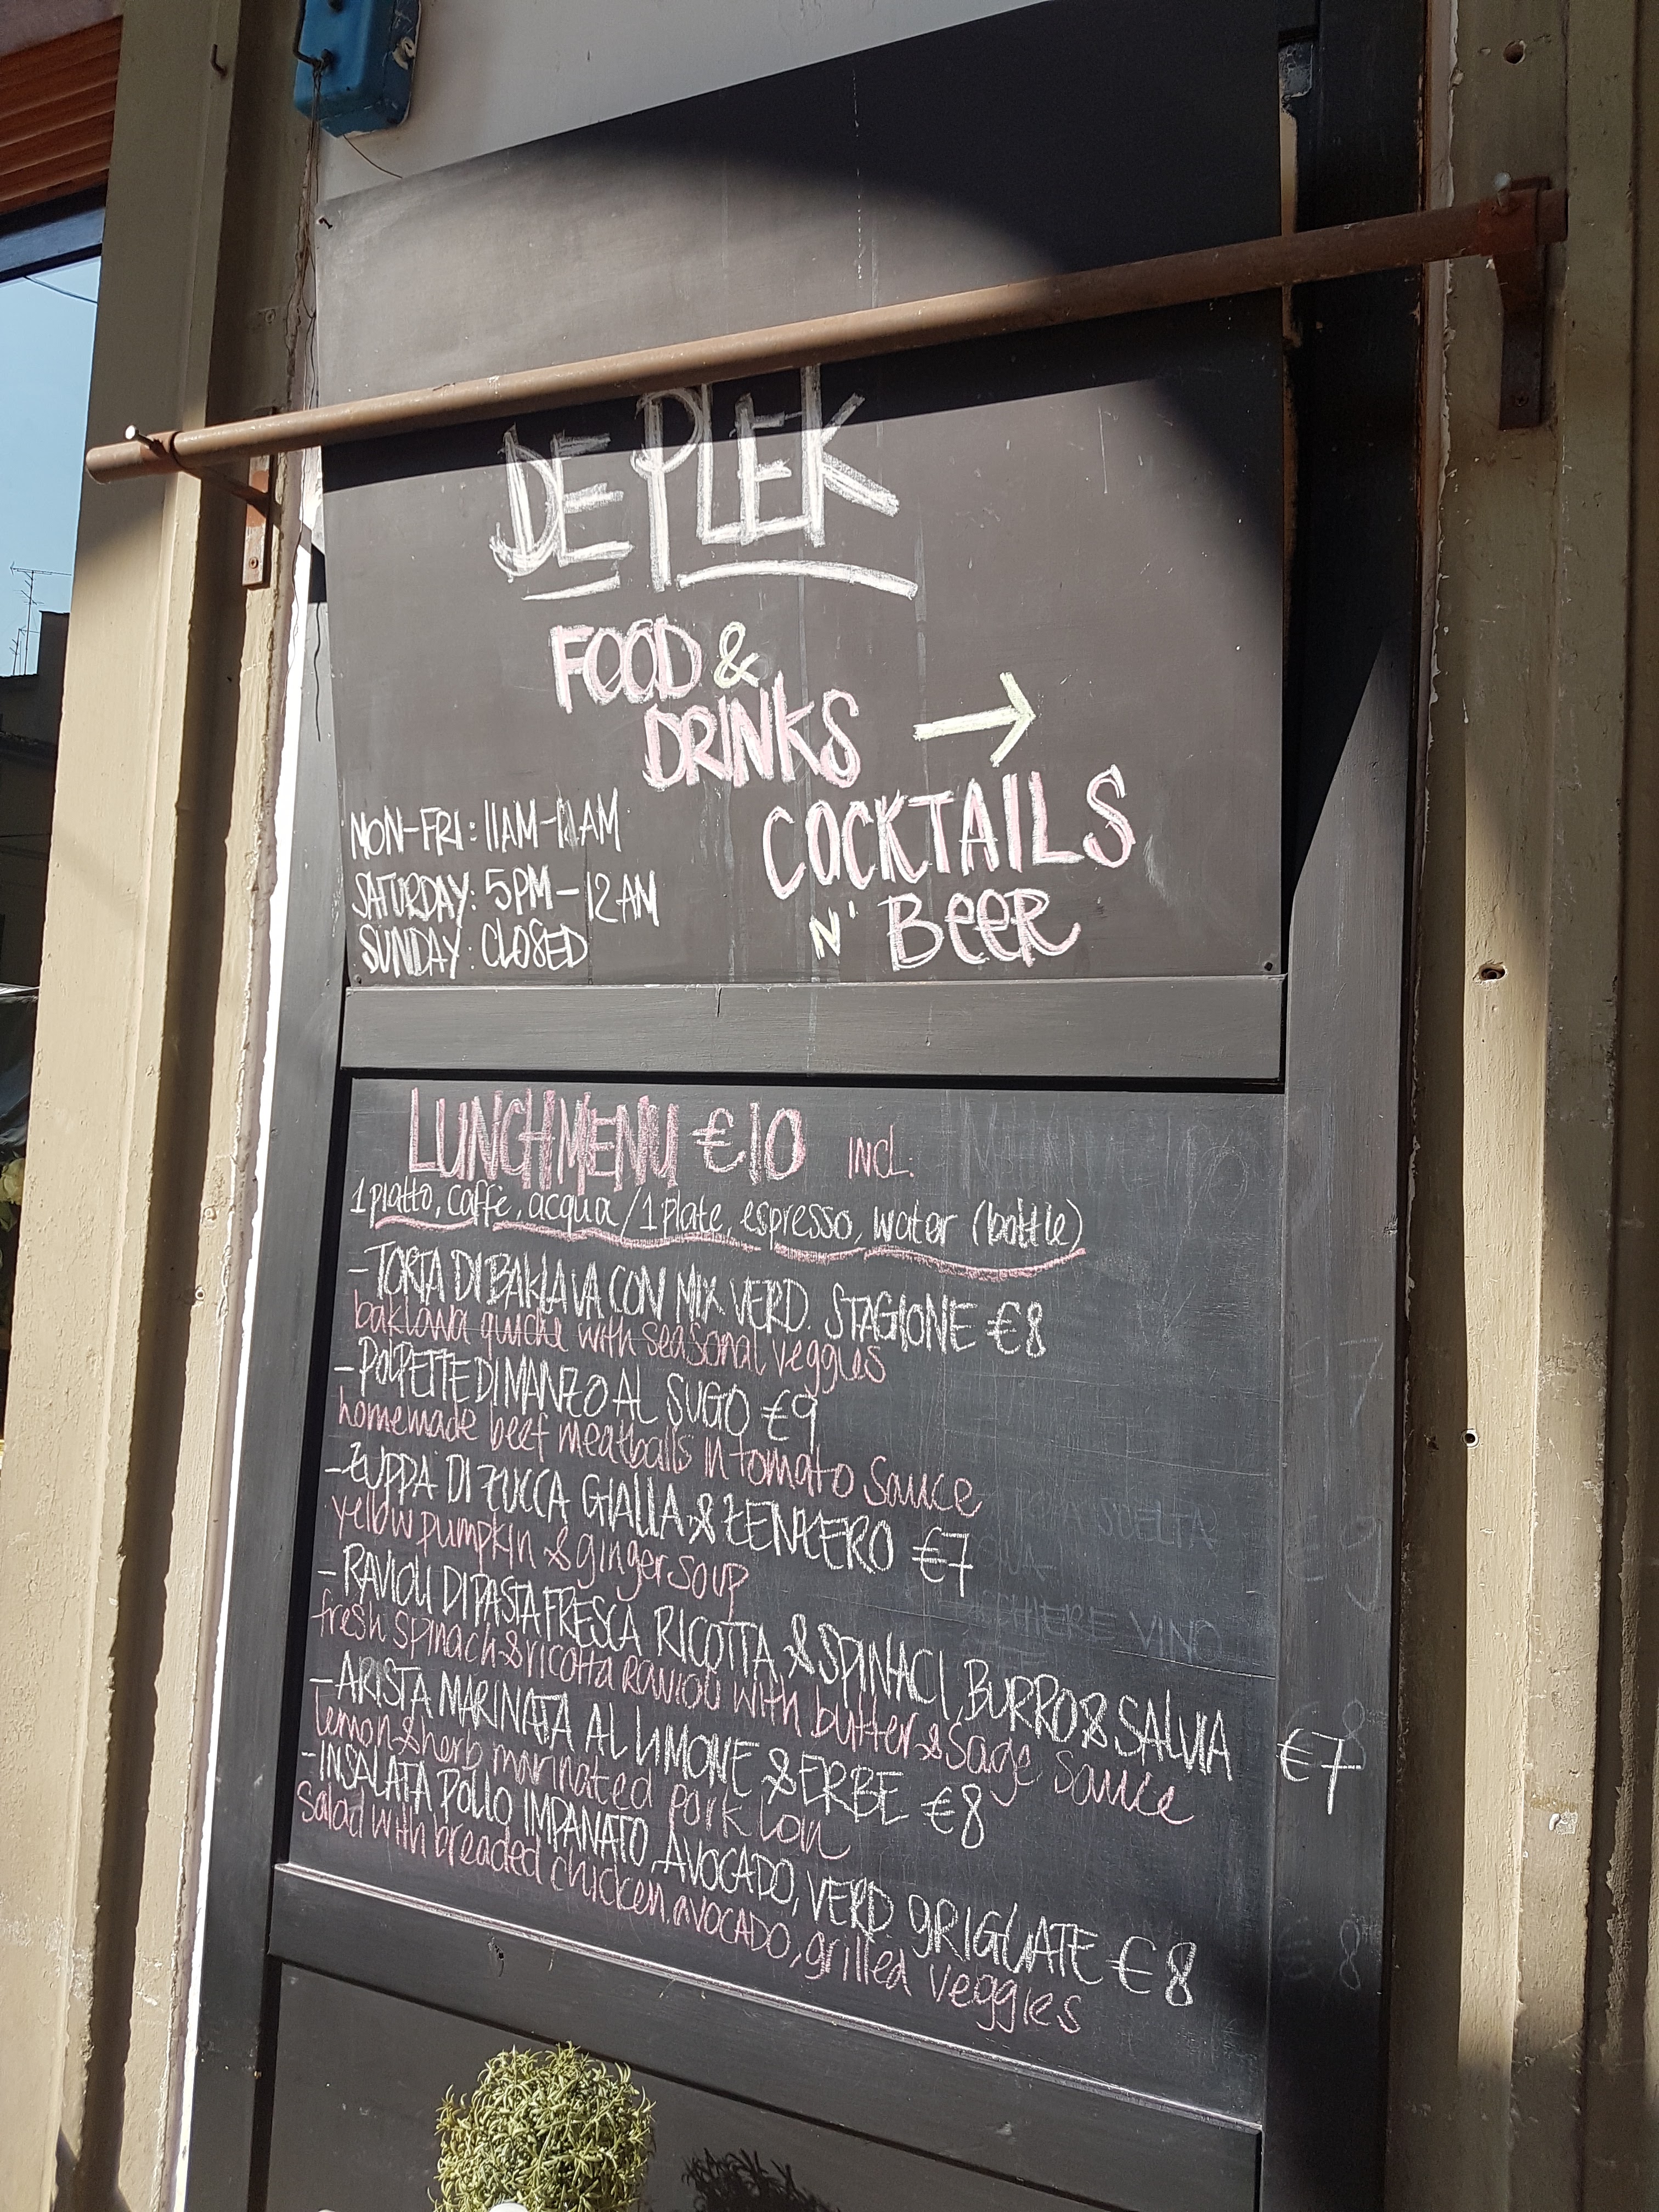 DE PLEK
FOOD &
DRINKS →
COCKTAILS
N' BEER
MON-FRI: 11AM-11AM
SATURDAY: 5PM-12AM
SUNDAY: CLOSED
LUNCHMENU €10 INCL.
1 piatto, caffè, acqua/1 plate, espresso, water (bottle)
-TORTA DI BAKLAVA CON MIX VERD. STAGIONE €8
baklava quiche with seasonal veggies
-POLPETTE DI MANZO AL SUGO €9
homemade beef meatballs in tomato sauce
-ZUPPA DI ZUCCA GIALLA & ZENZERO €7
yellow pumpkin & ginger soup
-RAVIOLI DI PASTA FRESCA RICOTTA & SPINACI, BURRO & SALVIA €7
fresh spinach & ricotta RAVIOLI with butter & sage sauce
-ARISTA MARINATA AL LIMONE & ERBE €8
lemon & herb marinated pork loin
-INSALATA POLLO IMPANATO, AVOCADO, VERD. GRIGLIATE €8
Salad with breaded chicken, AVOCADO, grilled veggies